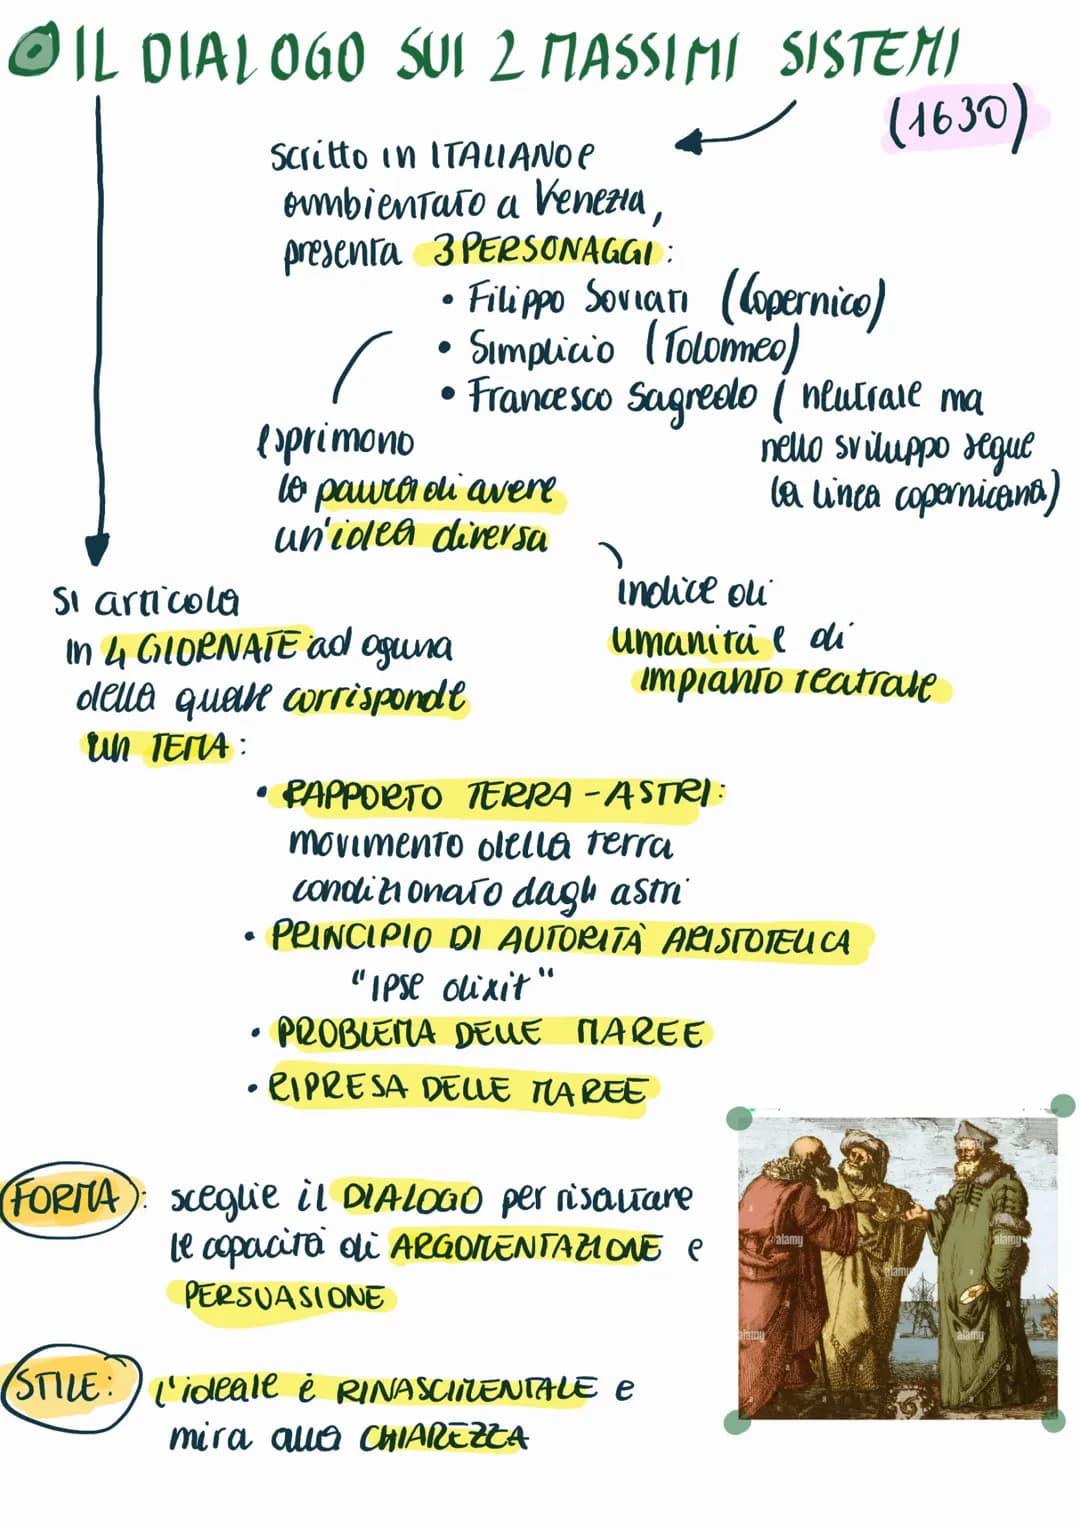 IL DIALOGO SUI 2 MASSIMI SISTEMI
(1630)
scritto in ITALIANO e
ambientato a Venezia,
presenta 3 PERSONAGGI:
• Filippo Soviati (Copernico)
• Simplicio (Tolomeo)
• Francesco Sagredo ( neutrale ma
nello sviluppo segue
la linea copernicana)
esprimono
la paura di avere
un'idea diversa
indice di
umanità e di
impianto teatrale
Si articola
in 4 GIORNATE ad oguna
della quale corrisponde
un TEMA:
• RAPPORTO TERRA - ASTRI:
movimento della terra
condizionato dagli astri
• PRINCIPIO DI AUTORITÀ ARISTOTELICA
"IPSE dixit"
• PROBLEMA DELLE MAREE
• RIPRESA DELLE MAREE
FORMA: sceglie il DIALOGO per risaltare
le capacità di ARGOMENTAZIONE e
PERSUASIONE
STILE: l'ideale è RINASCIMENTALE e
mira alla CHIAREZZA
alamy
alamy
alamy
alamy
alamy